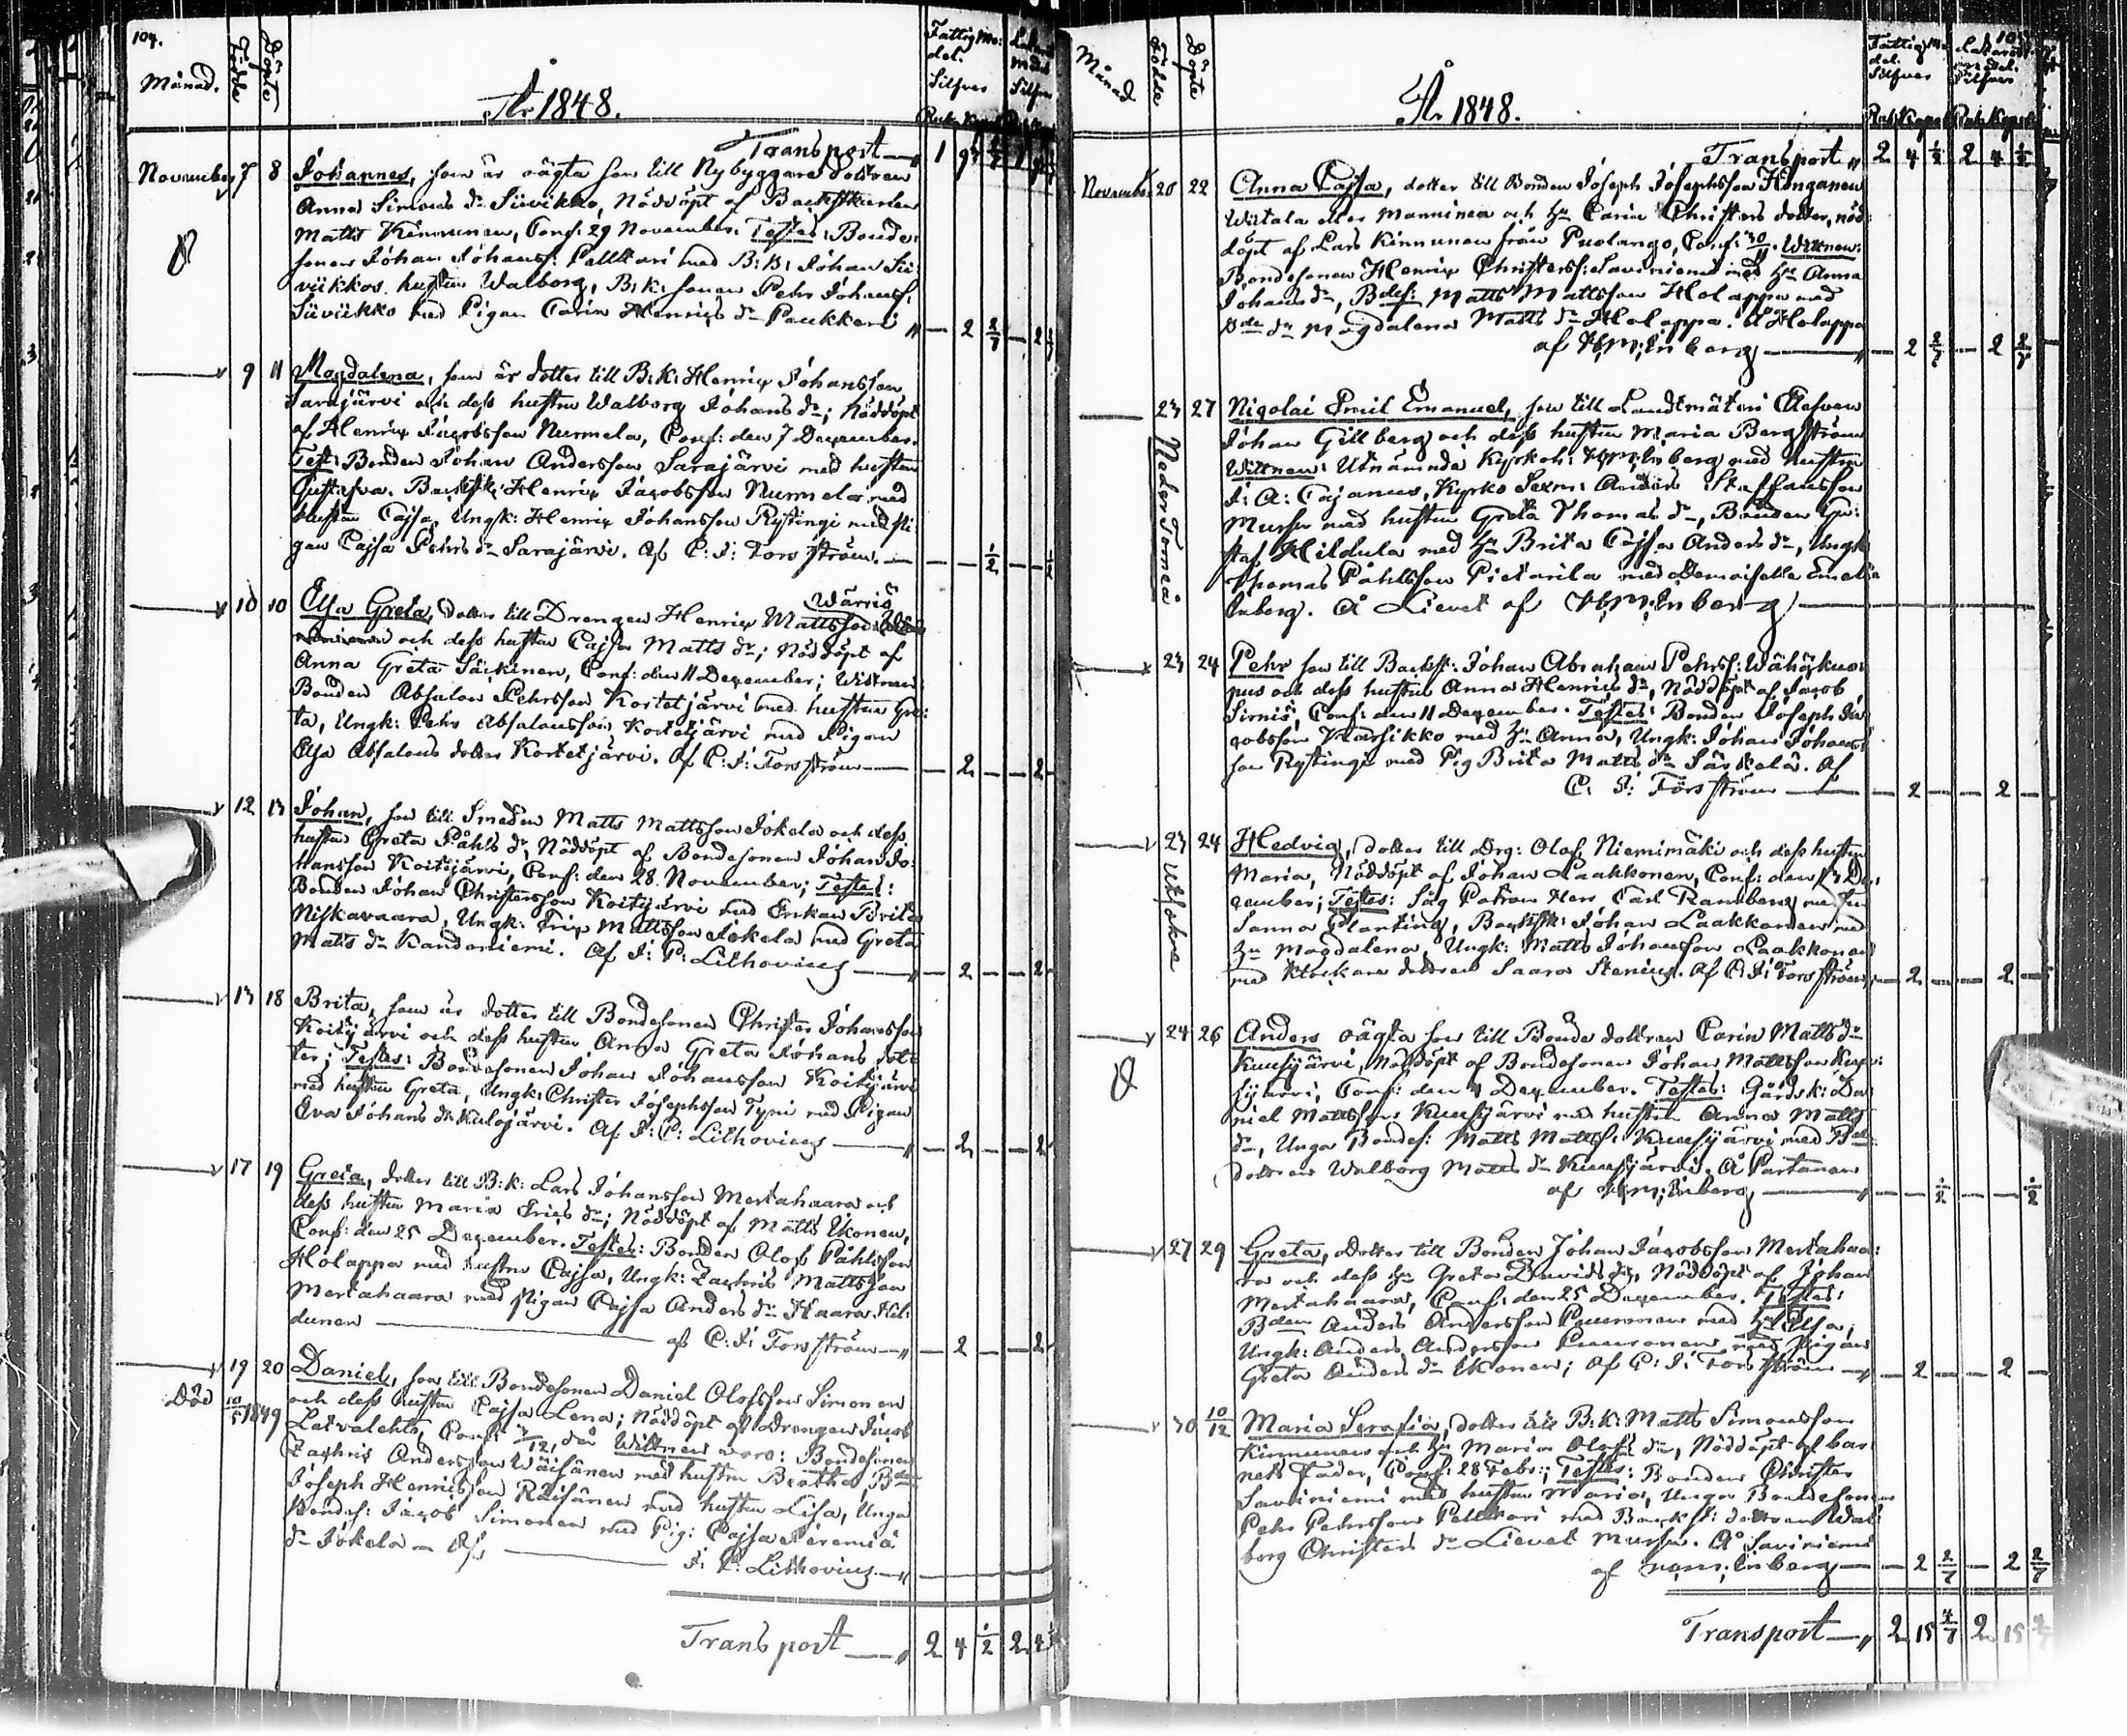 104.
Månad.
Födde
Döpte
År 1848.
Fattig Me:
del.
Silfver
Transport — " 1
November 7 8 Johannes, som är oägta son till Nybyggare dottren
Anna Simons dr Siivikko, Nöddöpt af Backstusun
Matts Kinnunen, Conf: 29 November. Testes: Bonde
sonen Johan Johanss: Pellikari med B: K: Johan Sii
viikkos hustru Walborg, B: K: sonen Pehr Johanss:
Siiviikko med Pigan Carin Henrics dr Paukkeri " — 2 2/7 — 2
9 11 Magdalena, som är dotter till B: K: Henric Johansson
Sarajärvi och dess hustru Walborg Johans dr; Nöddöpt
af Henric Jacobsson Nurmela, Conf: den 7 December.
Test: Bonden Johan Andersson Sarajärvi med hustru
Gustafva. Backst: Henric Jacobsson Nurmela med
hustru Cajsa, Ungk: Henric Johansson Rystingi med Pi:
gan Cajsa Pehrs dr Sarajärvi. Af C: J: Forsström. — — 1/2 — 1/2
10 10 Elsa Greta, dotter till Drengen Henric Mattsson Wärriö
och dess hustru Cajsa Matts dr; Nöddöpt af
Anna Greta Säikinen, Conf: den 11 December; Wittnen
Bonden Absalon Pehrsson Kortetjärvi med hustru Gre:
ta, Ungk: Pehr Absalonsson Kortetjärvi med Pigan
Elsa Absalons dotter Kortetjärvi. Af C: J: Forsström — — 2 — — 2
12 13 Johan, son till Smeden Matts Mattsson Jokela och dess
hustru Greta Påhls dr, Nöddöpt af Bondesonen Johan Jo:
hansson Koitijärvi, Conf: den 28. November; Testes:
Bonden Johan Christersson Koitijärvi med Enkan Brita
Niskavaara, Ungk: Eric Mattsson Jokela med Greta
Matts dr Kandaniemi. Af J: P: Lithovius — " — 2 — — 2
13 18 Brita, som är dotter till Bondesonen Christer Johansson
Koitijärvi och dess hustru Anna Greta Johans dot:
ter; Testes: Bondesonen Johan Johansson Koitijärvi
med hustru Greta, Ungk: Christer Josephsson Tyni med Pigan
Eva Johans dr Kulojärvi. Af J: P: Lithovius — " — 2 — — 2
17 19 Greta, dotter till B: K: Lars Johansson Mertahaara och
dess hustru Maria Erics dr; Nöddöpt af Matts Ikonen,
Conf: den 25 December. Testes: Bonden Olof Påhlsson
Holappa med hustru Cajsa, Ungk: Zachris Mattsson
Mertahaara med Pigan Cajsa Anders dr Haara Hil:
dunen — af C: J: Forsström — " — 2 — — 2
19 20 Daniel, son till Bondesonen Daniel Olofsson Simonen
Död 10/5 1849 och dess hustru Cajsa Lena; Nöddöpt af Drengen Jacob
Latvalehto, Conf: 3/12, då Wittnen voro: Bondesonen
Zachris Andersson Wäisänen med hustru Beatha, Bden
Joseph Henricsson Räisänen med hustru Lisa, Unga
Bondes: Jacob Simonen med Pig: Cajsa Jeremiä
dr Jokela — Af — J: P: Lithovius — "
Transport — " 2 4 1/2 2 4
Månad
Födde
Döpte
År 1848.
Fattig Me
del.
Silfver
Transport " 2 4 1/2 2 4 1/2
November 20 22 Anna Cajsa, dotter till Bonden Joseph Josephsson Hänganen
Wirtala eller Manninen och Hu Carin Christers dotter, nöd:
döpt af Lars Kinnunen från Puolango, Conf: 30/11. Wittnen:
Bondesonen Henric Christerss: Saviniemi med Hu Anna
Johans dr, Bdes: Matts Mattsson Holappa med
Bde dr Magdalena Matts dr Holappa. Å Holappa
af H: M: Enberg — " — 2 2/7 — 2 2/7
23 27 Nicolai Emil Emanuel, son till Landtmäteri Eleven
Neder Torneå
Johan Gillberg och dess hustru Maria Bergström
Wittnen: Utnämnde Kyrkoh: H: M: Enberg med hustru
J: A: Cajanus, Kyrko Sexm: Anders Staffansson
Mursu med hustru Greta Thomas dr, Bonden Gu:
staf Hildula med Hu Brita Cajsa Anders dr, Ungk
Thomas Påhlsson Pietarila med Demoiselle Emelie
Enberg. Å Lievet af H: M: Enberg —
23 24 Pehr son till Backst: Johan Abraham Pehrss: Wähäkuo:
pus och dess hustru Anna Henrics dr, Nöddöpt af Jacob
Sirniö, Conf: den 11 December. Testes: Bonden Joseph Ja:
cobsson Karsikko med Hu Anna, Ungk: Johan Johans:
son Rystingi med Pig Brita Matts dr Särkelä. Af
C: J: Forsström — — 2 — — 2 —
23 24 Hedvig, dotter till Drg: Olof Niemimäki och dess hustru
Maria, Nöddöpt af Johan Laakkonen, Conf: den 13 De:
cember; Testes: Såg Patron Herr Carl Ramberg med fru
Sanna Planting, Backstk: Johan Laakkonen med
Hu Magdalena, Ungk: Matts Johansson Laakkonen
med Klockare dottren Saara Stenius. Af C: J: Forsström — — 2 — — 2 —
24 26 Anders oägta son till Bonde dottren Carin Matts dr
Kuusijärvi, Nöddöpt af Bondesonen Johan Mattsson Kuu:
sijärvi, Conf: den 4 December. Testes: Gårdsk: Da:
niel Mattsson Kuusijärvi med hustru Anna Matts
dr, Unga Bondes: Matts Matts: Kuusijärvi med Bde
dottren Walborg Matts dr Kuusijärvi. Å Partanen
af H: M: Enberg — " — — 1/2 — — 1/2
27 29 Greta, dotter till Bonden Johan Jacobsson Mertahaa:
ra och dess Hu Greta Davids dr, Nöddöpt af Johan
Mertahaara, Conf: den 25 December. Testes:
Bden Anders Andersson Pauronen med Hu Elsa,
Ungk: Anders Andersson Pauronen med Pigan
Greta Anders dr Ikonen; Af C: J: Forsström — " — 2 — — 2 —
30 10/12 Maria Serafia, dotter till B: K: Matts Simonsson
Kinnunen och Hu Maria Olofs dr, Nöddöpt af bar
nets Fader, Conf: 28 Febr:; Testes: Bonden Christer
Saviniemi med hustru Maria, Unga Bondesonen
Pehr Pehrsson Pellikari med Backst: dottren Wal
borg Christers dr Lievet Mursu. Å Saviniemi
af H: M: Enberg — — 2 2/7 — 2 2/7
Transport — " 2 15 4/7 2 15 4/7